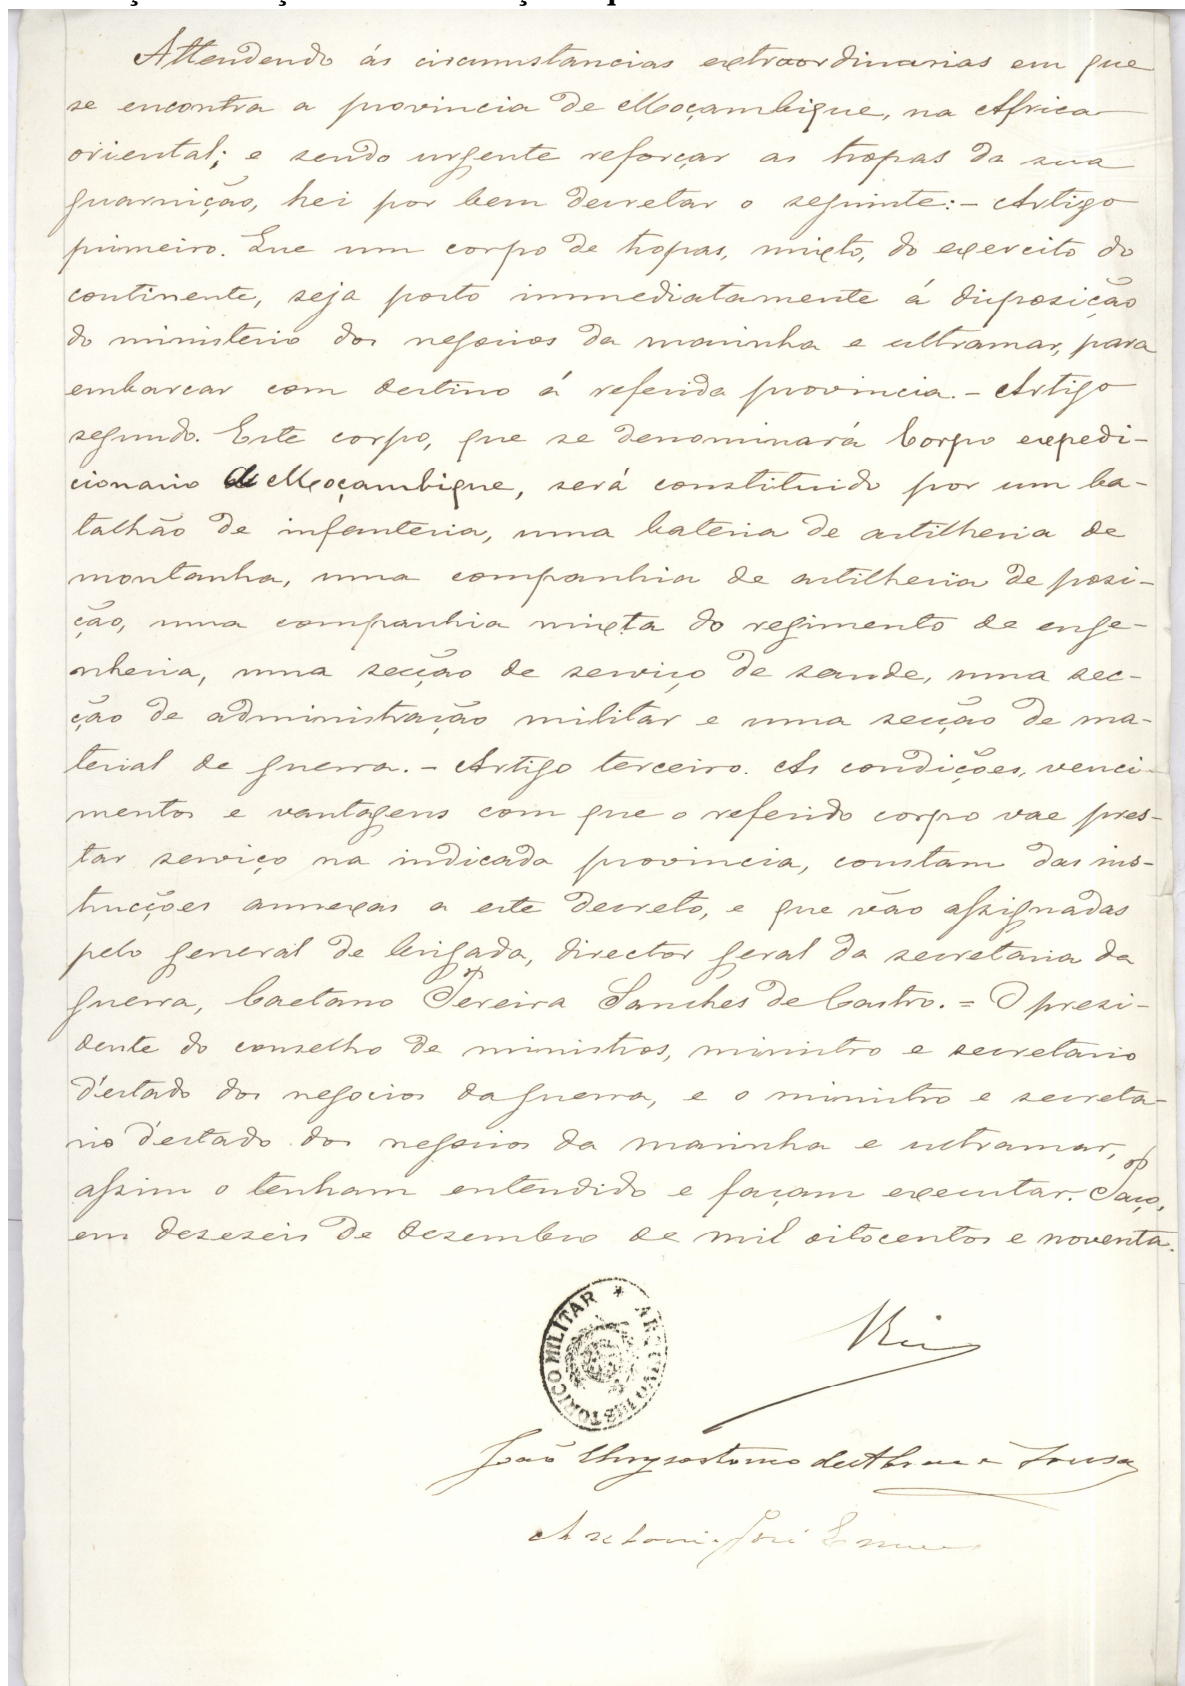 Attendendo ás circumstancias extraordinarias em que
se encontra a provincia de Moçambique, na Africa
oriental; e sendo urgente reforçar as tropas da sua
guarnição, hei por bem decretar o seguinte: - Artigo
primeiro. Que um corpo de tropas, mixto, do exercito do
continente, seja posto immediatamente á disposição
do ministerio dos negocios da marinha e ultramar, para
embarcar com destino á referida provincia. - Artigo
segundo. Este corpo, que se denominará Corpo expedi-
cionario de Moçambique, será constituido por um ba-
talhão de infanteria, uma bateria de artilheria de
montanha, uma companhia de artilheria de posi-
ção, uma companhia mixta do regimento de enge-
nheria, uma secção de serviço de saude, uma sec-
ção de administração militar e uma secção de ma-
terial de guerra. - Artigo terceiro. As condições, venci-
mentos e vantagens com que o referido corpo vae pres-
tar serviço na indicada provincia, constam das ins-
trucções annexas a este decreto, e que vão assignadas
pelo general de brigada, director geral da secretaria da
guerra, Caetano Pereira Sanches de Castro. = O presi-
dente do conselho de ministros, ministro e secretario
d'estado dos negocios da guerra, e o ministro e secreta-
rio d'estado dos negocios da marinha e ultramar,
assim o tenham entendido e façam executar. Paço,
em dezeseis de dezembro de mil oitocentos e noventa.
ARQUIVO HISTORICO MILITAR *
Rei
João Chrysostomo de Abreu e Sousa
Antonio José Ennes